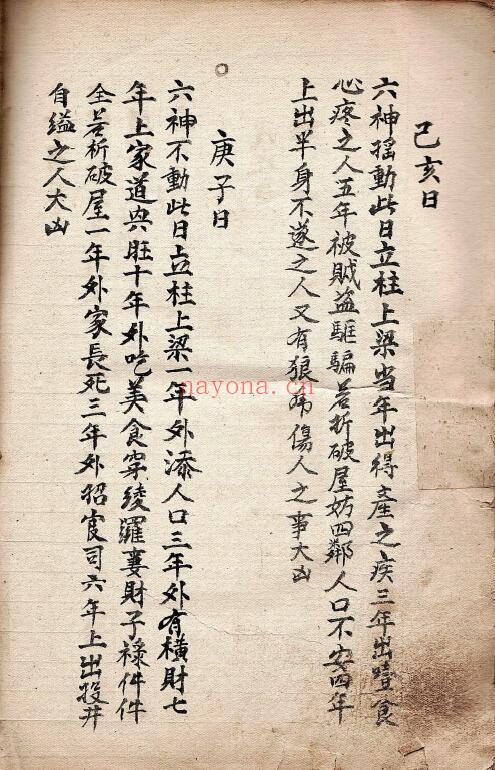 己亥日
六神摇動此日立柱上梁当年出得產之疾三年出噎食
心疼之人五年被賊盗駈騙若折破屋妨四鄰人口不安四年
上出半身不遂之人又有狼傷人之事大凶
庚子日
六神不動此日立柱上梁一年外添人口三年外有横財七
年上家道興旺十年外吃美食穿綾羅妻財子禄件件
全若折破屋一年外家長死三年外招官司六年上出投井
自縊之人大凶
nayona.cn